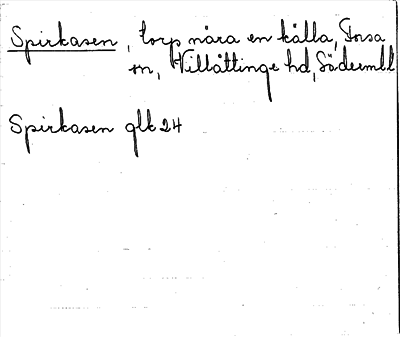 Spirkasen, torp nära en källa, Forsa
sn, Villåttinge hd, Södermll
Spirkasen glk 24